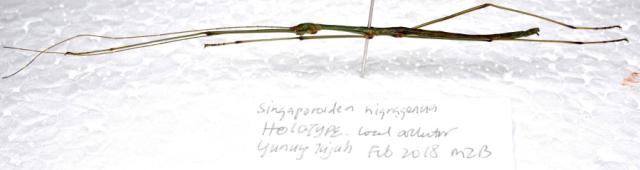 Singaporoidea nigragenus
HOLOTYPE. Local collector
Gunung Jujuh Feb 2018 MZB